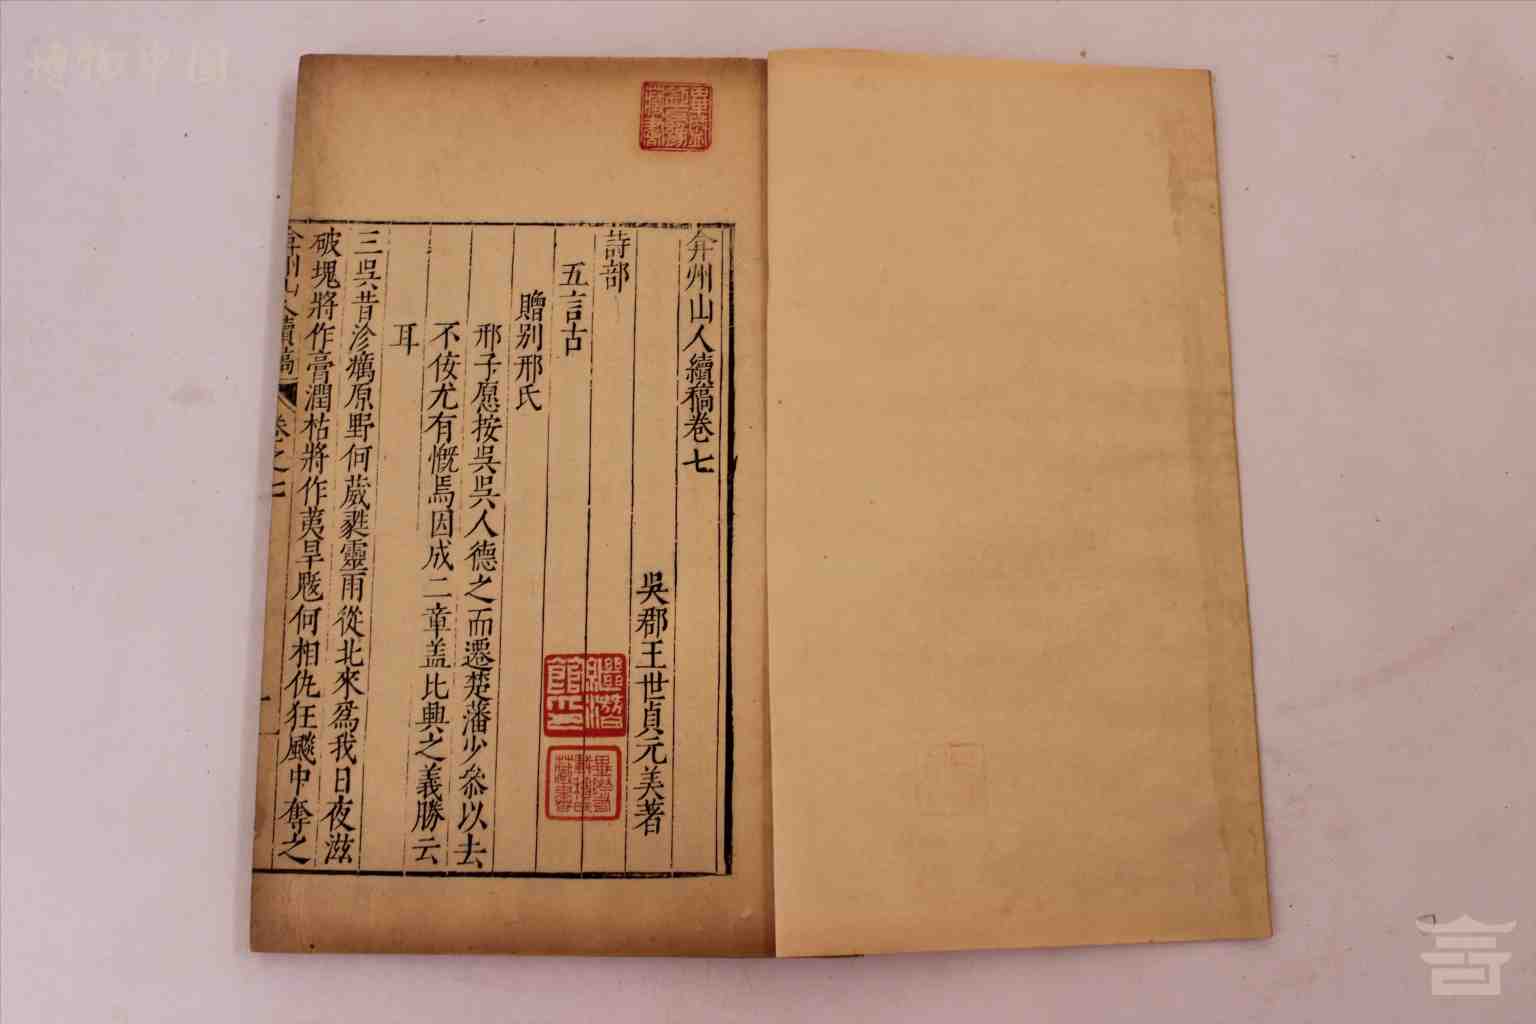 弇州山人續稿卷七
吳郡王世貞元美著
詩部
五言古
贈别邢氏
邢子愿按吳吳人德之而遷楚藩少叅以去
不佞尤有慨焉因成二章盖比興之義勝云
耳
三吳昔沴癘原野何葳蕤靈雨從北來爲我日夜滋
破塊將作膏潤枯將作荑旱魃何相仇狂飈中奪之
弇州山人續稿
卷之七
一
繼潛館印
博物中国